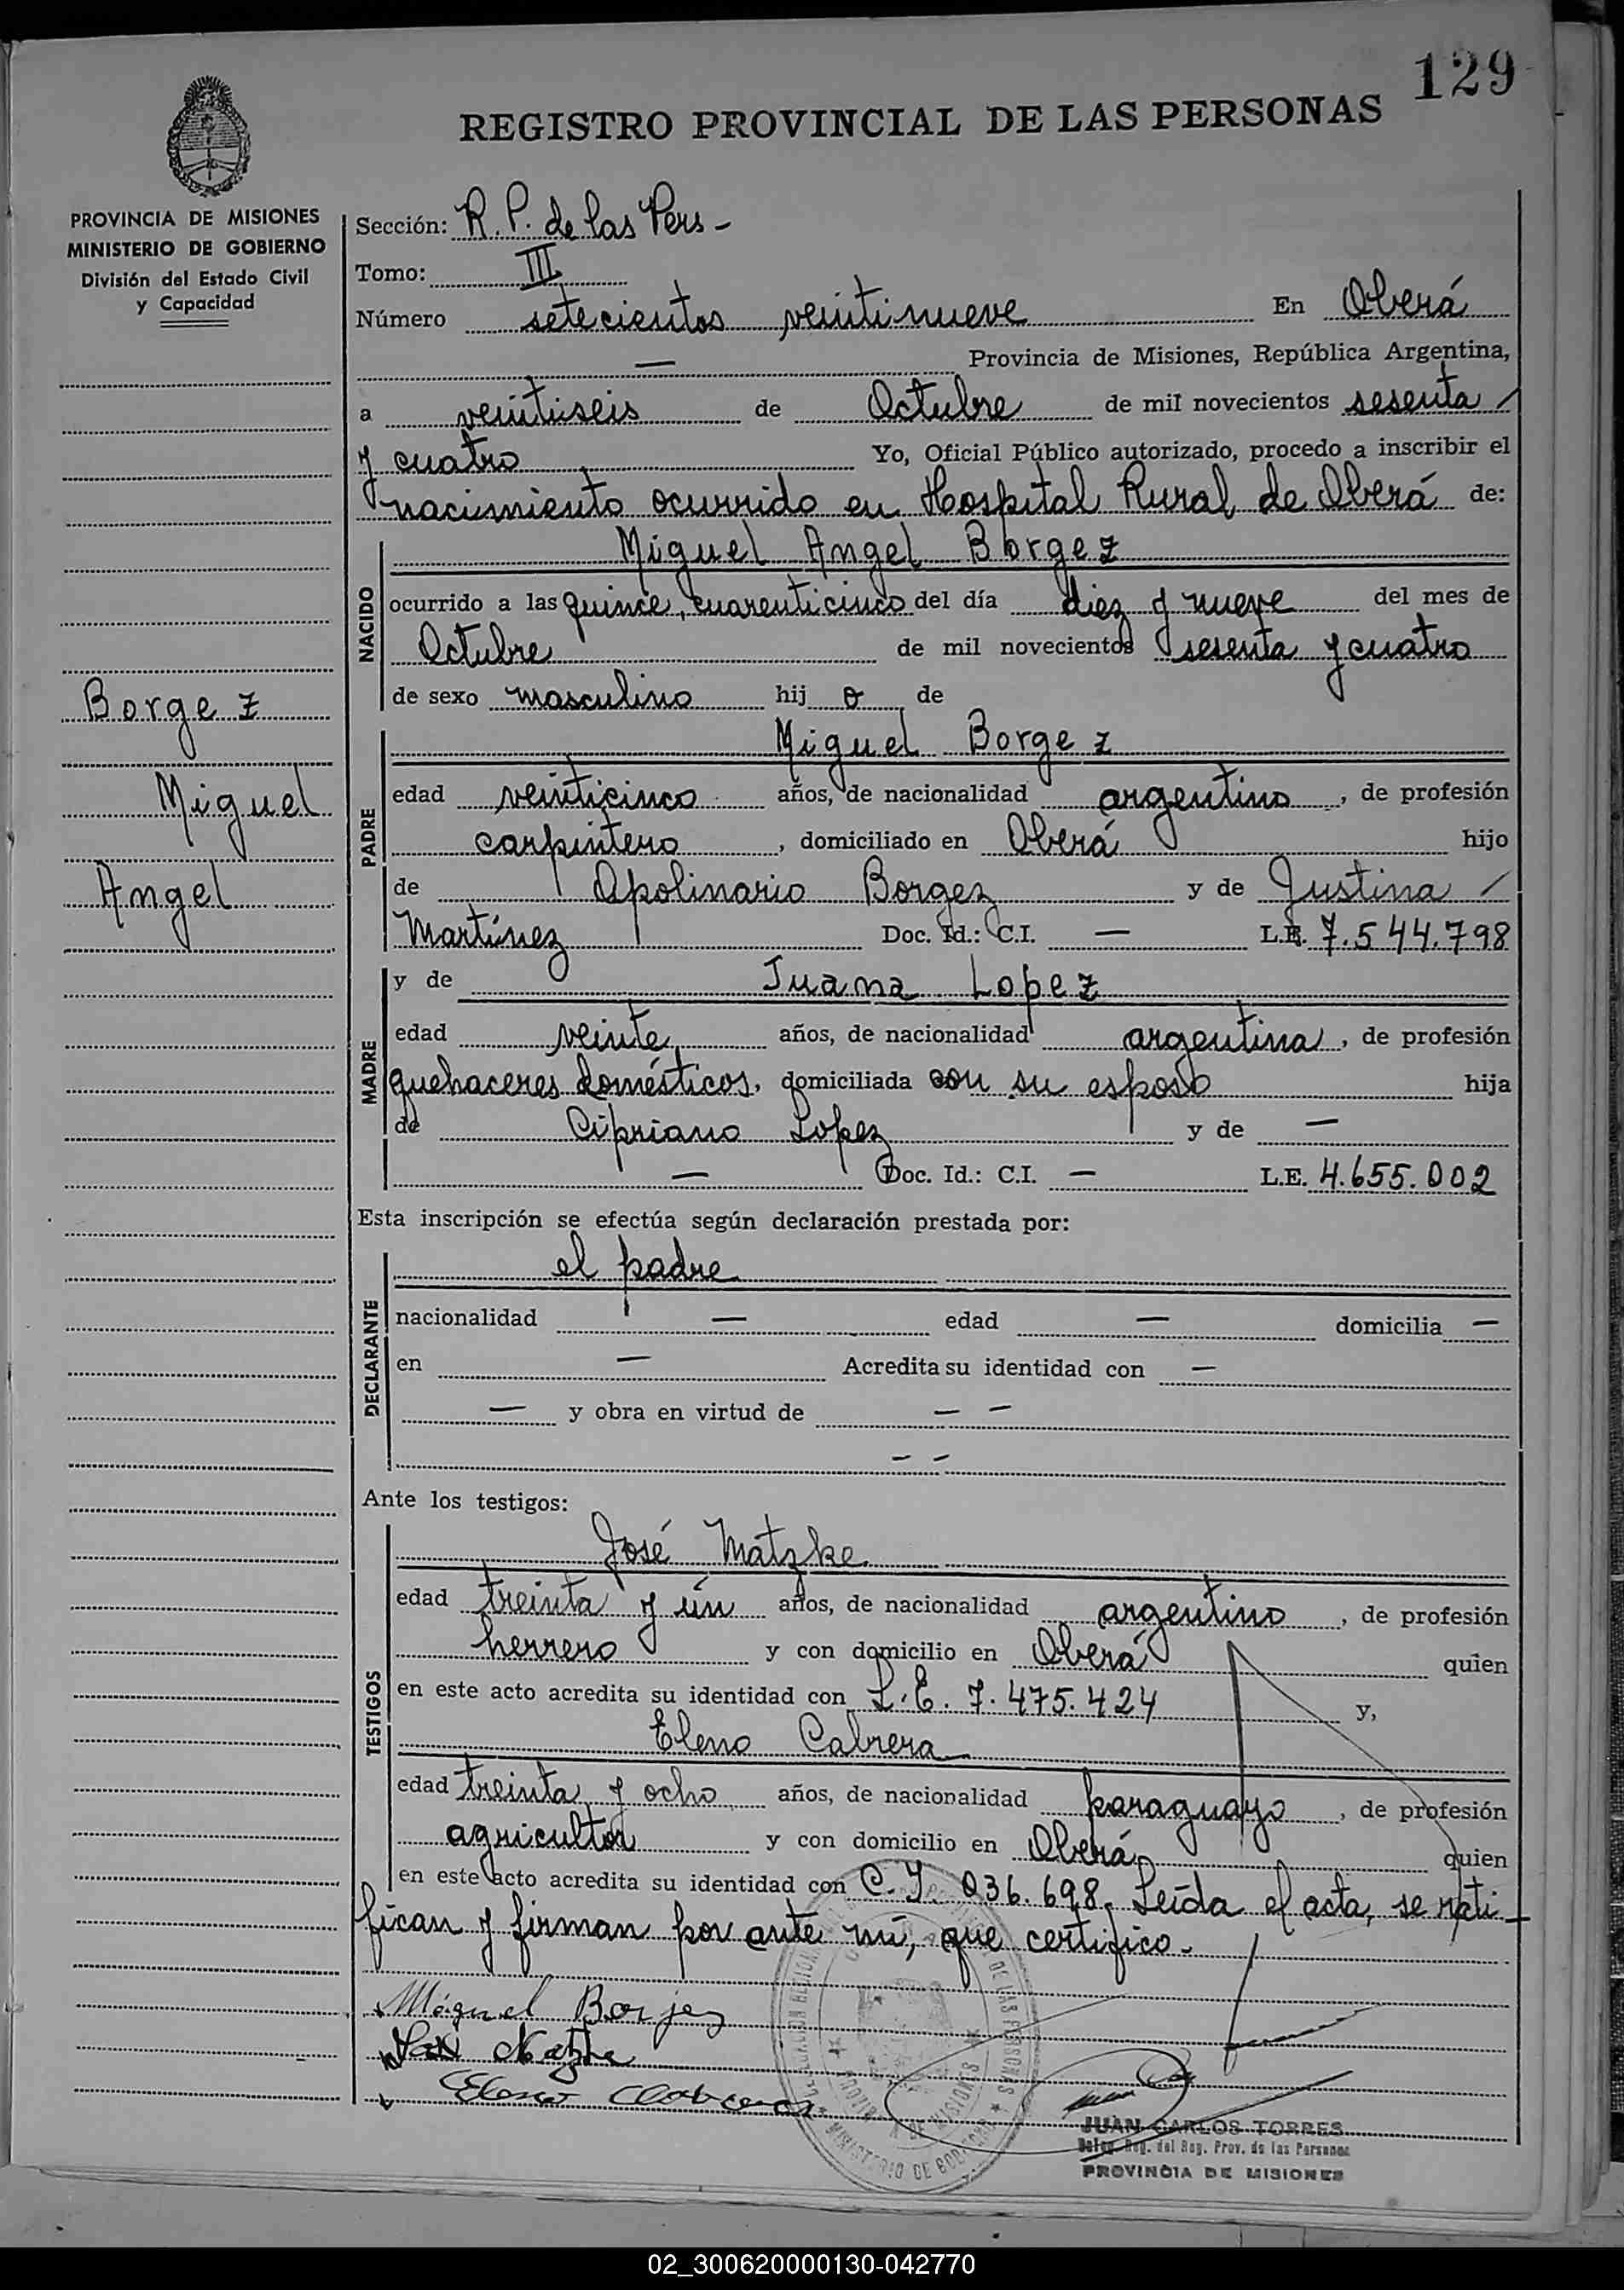 129
REGISTRO PROVINCIAL DE LAS PERSONAS
PROVINCIA DE MISIONES
MINISTERIO DE GOBIERNO
División del Estado Civil
y Capacidad
Sección: R. P. de las Pers -
Tomo: III
Número setecientos veintinueve En Oberá
— Provincia de Misiones, República Argentina,
a veintiseis de Octubre de mil novecientos sesenta /
y cuatro Yo, Oficial Público autorizado, procedo a inscribir el
nacimiento ocurrido en Hospital Rural de Oberá de:
NACIDO
Miguel Angel Borgez
ocurrido a las quince, cuarenticinco del día diez y nueve del mes de
Octubre de mil novecientos sesenta y cuatro
de sexo masculino hij o de
Borgez
Miguel
Angel
PADRE
Miguel Borgez
edad veinticinco años, de nacionalidad argentino, de profesión
carpintero, domiciliado en Oberá hijo
de Apolinario Borgez y de Justina /
Martínez Doc. Id.: C.I. — L.E. 7.544.798
MADRE
y de Juana Lopez
edad veinte años, de nacionalidad argentina, de profesión
quehaceres domésticos, domiciliada con su esposo hija
de Cipriano Lopez y de —
— Doc. Id.: C.I. — L.E. 4.655.002
Esta inscripción se efectúa según declaración prestada por:
DECLARANTE
el padre
nacionalidad — edad — domicilia —
en — Acredita su identidad con —
— y obra en virtud de — —
— —
Ante los testigos:
TESTIGOS
José Matzke
edad treinta y ún años, de nacionalidad argentino, de profesión
herrero y con domicilio en Oberá quien
en este acto acredita su identidad con L.E. 7.475.424 y,
Eleno Cabrera
edad treinta y ocho años, de nacionalidad paraguayo, de profesión
agricultor y con domicilio en Oberá quien
en este acto acredita su identidad con C.I. 036.698. Leída el acta, se rati-
fican y firman por ante mí, que certifico.
Miguel Borjez
Eleno Cabrera
MINISTERIO DE GOBIERNO
PROVINCIA DE MISIONES
JUAN CARLOS TORRES
Deleg. Reg. del Reg. Prov. de las Personas
PROVINCIA DE MISIONES
02_300620000130-042770